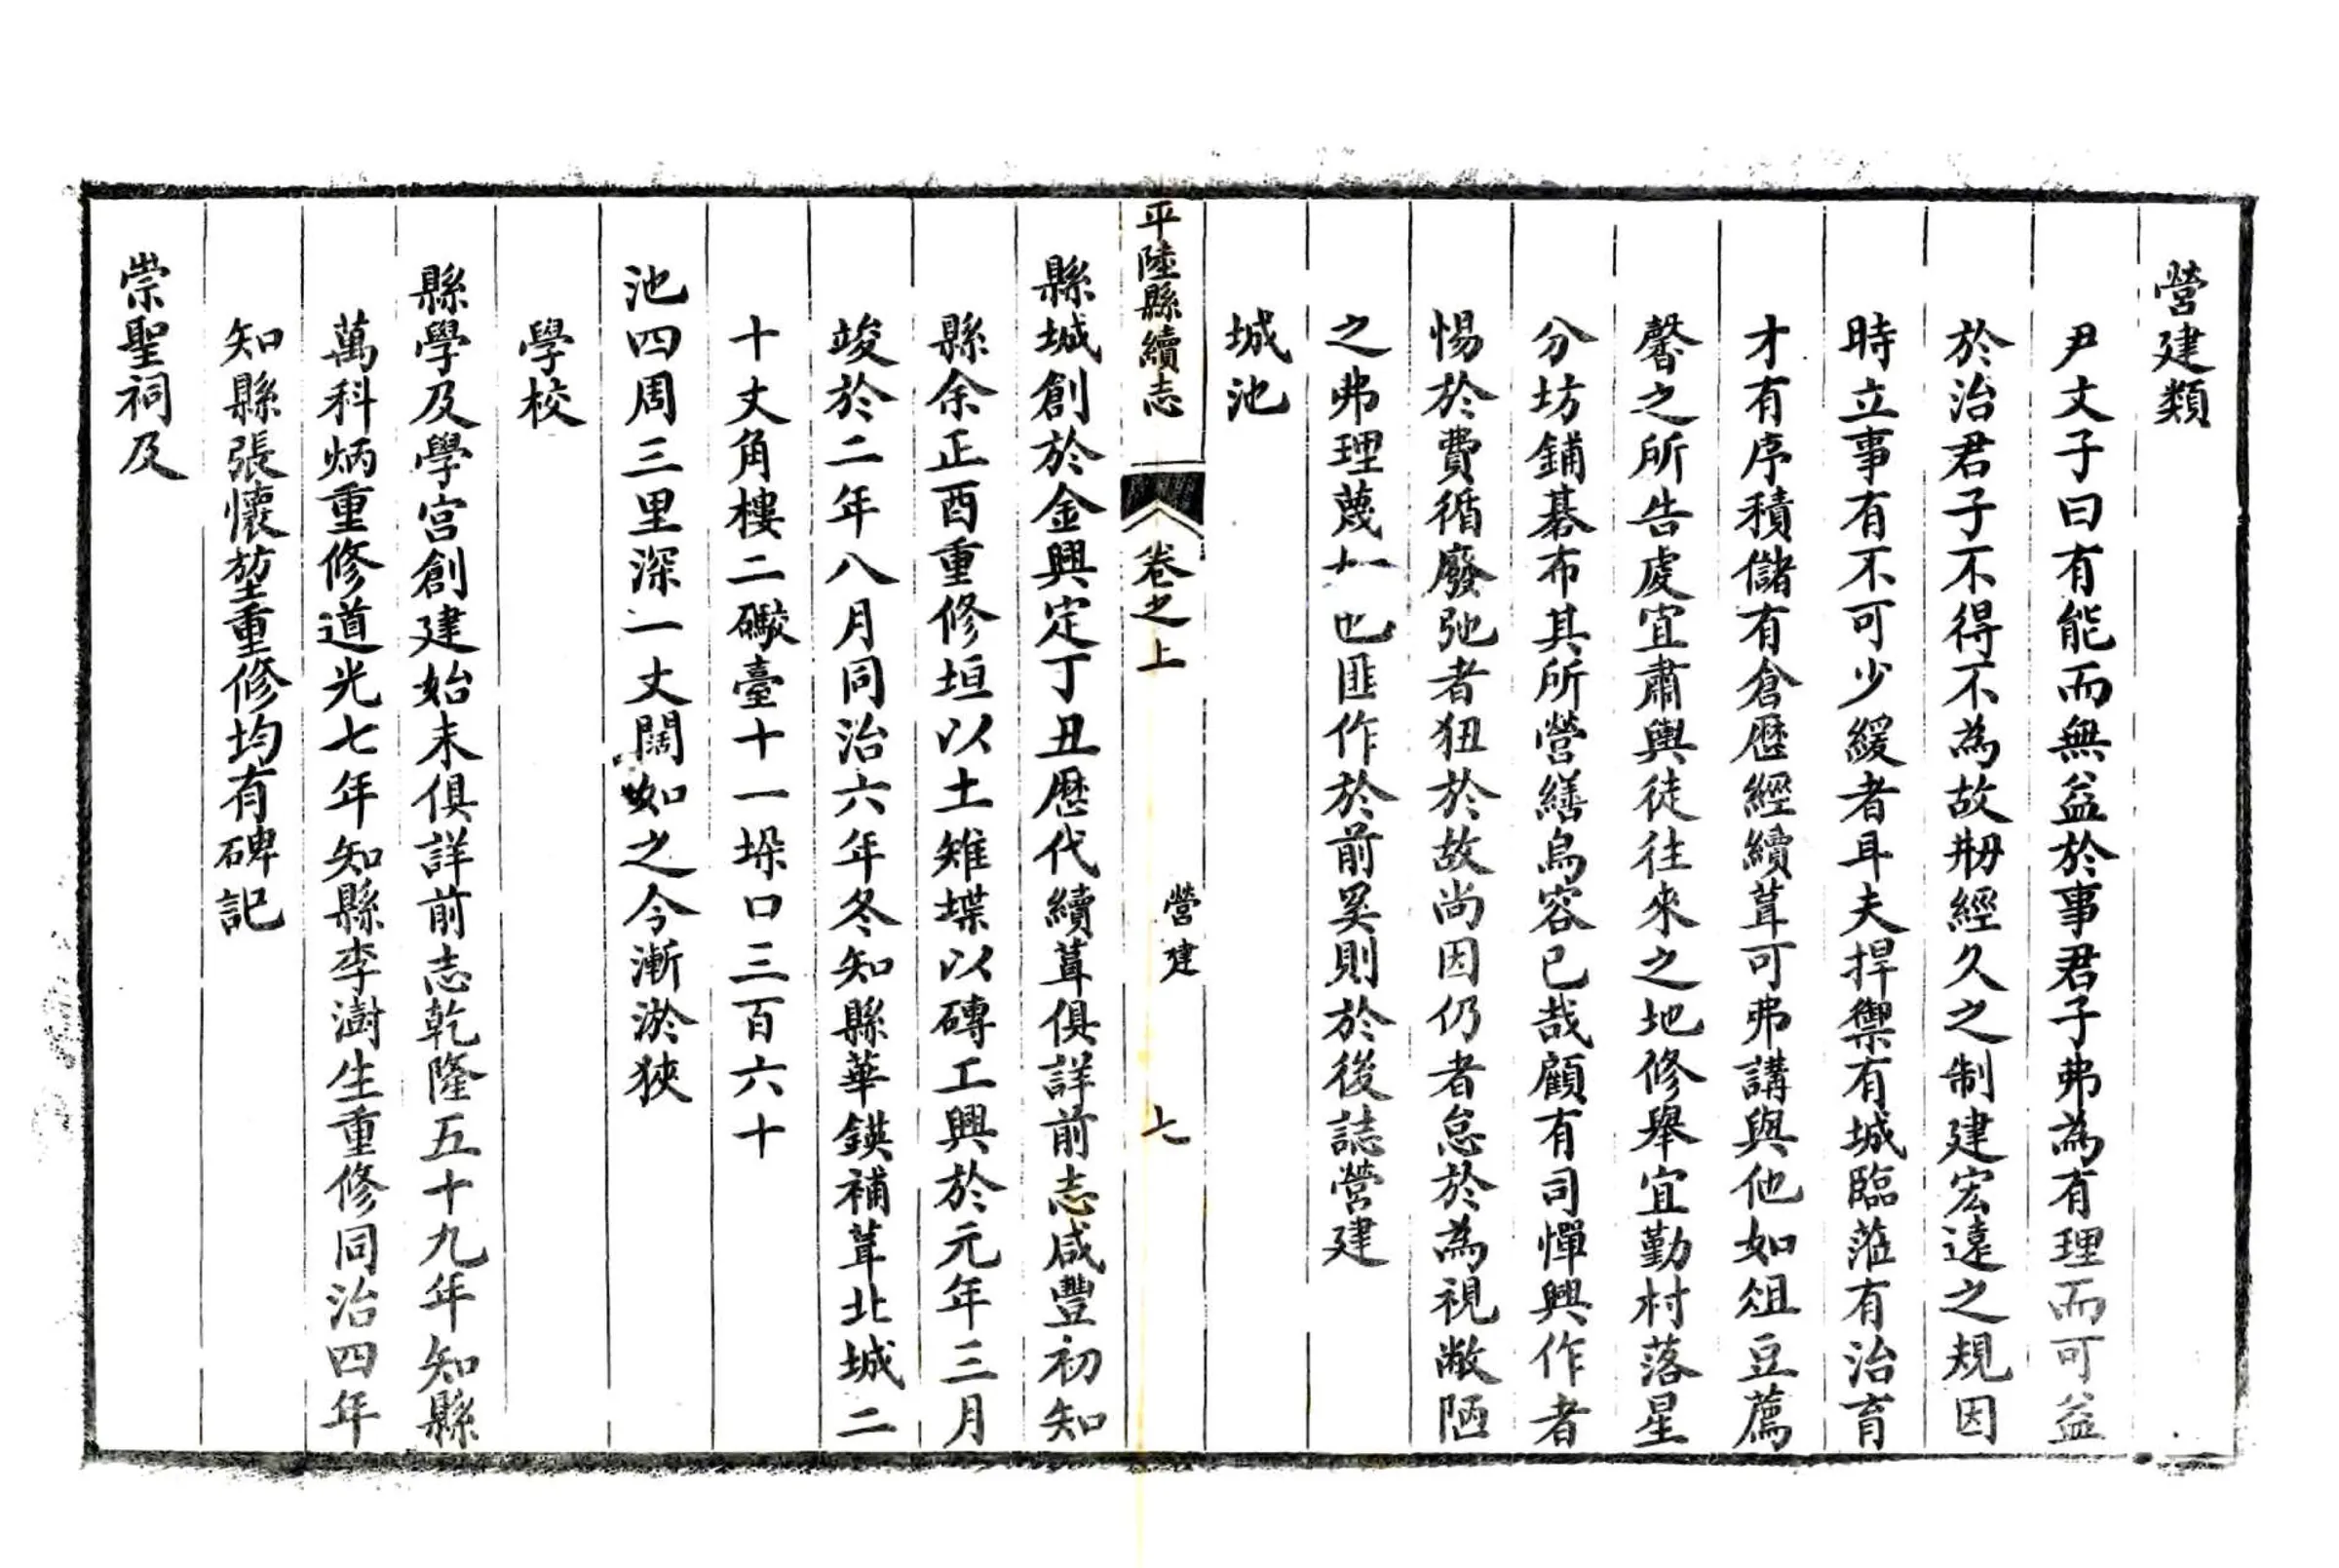 營建類
尹文子曰有能而無益於事君子弗為有理而可益
於治君子不得不為故剏經久之制建宏遠之規因
時立事有不可少緩者耳夫捍禦有城臨蒞有治育
才有序積儲有倉歷經續葺可弗講與他如俎豆薦
馨之所告處宜肅輿徒往來之地修舉宜勤村落星
分坊鋪碁布其所營繕烏容已哉顧有司憚興作者
惕於費循廢弛者狃於故尚因仍者怠於為視敝陋
之弗理蔑如也匪作於前奚則於後誌營建
城池
平陸縣續志 卷之上 營建 七
縣城創於金興定丁丑歷代續葺俱詳前志咸豐初知
縣余正酉重修垣以土雉堞以磚工興於元年三月
竣於二年八月同治六年冬知縣華鍈補葺北城二
十丈角樓二礮臺十一垛口三百六十
池四周三里深一丈闊如之今漸淤狹
學校
縣學及學宮創建始末俱詳前志乾隆五十九年知縣
萬科炳重修道光七年知縣李澍生重修同治四年
知縣張懷堃重修均有碑記
崇聖祠及